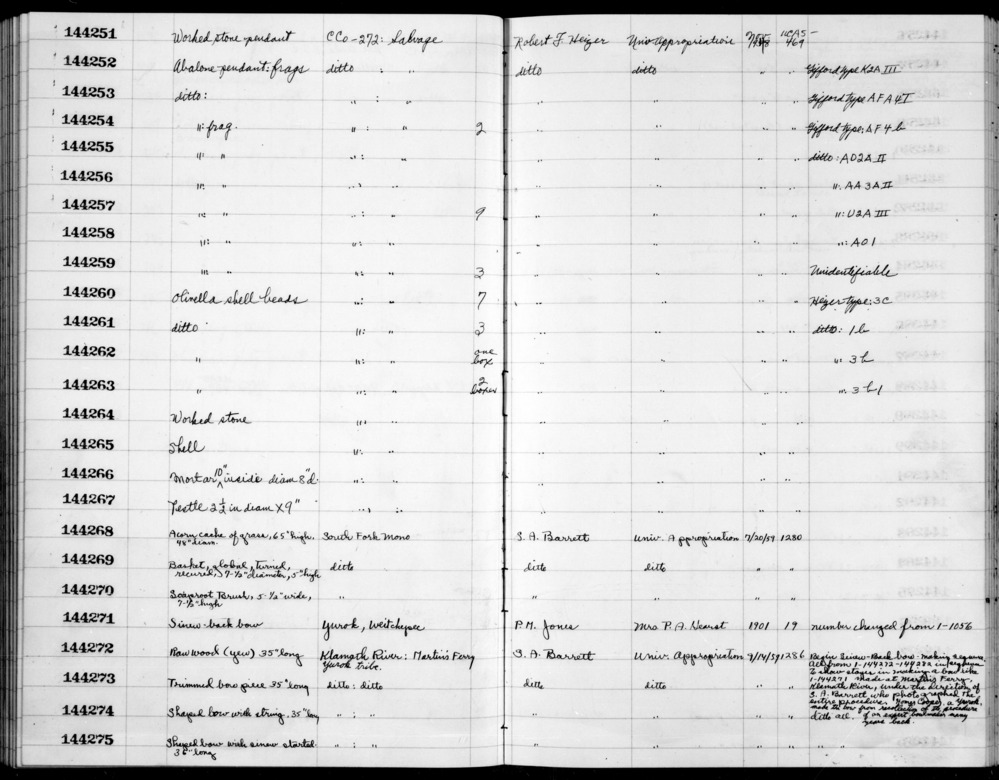 144251 Worked stone pendant CCo-272: Salvage Robert F. Heizer Univ. Appropriation UCAS-469
144252 Abalone pendant: frags ditto ditto ditto " " Gifford type K2A III
144253 ditto: " : " " " " " Gifford type AFA4I
144254 ": frag. " : " 2 " " " " Gifford type: AF4b
144255 ": " " : " " " " " ditto: AD2A II
144256 ": " " : " " " " " ": AA3A II
144257 ": " " : " 9 " " " " ": U2A III
144258 ": " " : " " " " " ": AO1
144259 ": " " : " 3 " " " " Unidentifiable
144260 Olivella shell beads " : " 7 " " " " Heizer type: 3C
144261 ditto " : " 3 " " " " ditto: 1b
144262 " " : " one box " " " " ": 3h
144263 " " : " 2 boxes " " " " ": 3h1
144264 Worked stone " : " " " " "
144265 Shell " : " " " " "
144266 Mortar 10" inside diam 8"d. " : " " " " "
144267 Pestle 2 1/2 in diam X 9" " : " " " " "
144268 Acorn cache of grass, 65" high, 48" diam. South Fork Mono S. A. Barrett Univ. Appropriation 7/20/59 1280
144269 Basket, global, turned, recurved, 7-1/2" diameter, 5" high ditto ditto ditto " "
144270 Soaproot Brush, 5-1/2" wide, 7-1/2" high " " " " "
144271 Sinew-back bow Yurok, Weitchepec P. M. Jones Mrs. P. A. Hearst 1901 19 number changed from 1-1056
144272 Raw wood (yew) 35" long Klamath River: Martins Ferry Yurok tribe. S. A. Barrett Univ. Appropriation 9/14/59 1286 Begin Sinew-Back bow-making
All from 1-144272-144272 in
to show stages in making a bow like
1-144271 made at Martins Ferry,
Klamath River, under the direction of
S. A. Barrett who photographed the
entire procedure. Cooper, a Yurok,
made the bow from recollection of the procedure
of an expert bowmaker many
years back.
144273 Trimmed bow piece 35" long ditto: ditto ditto ditto " "
144274 Shaped bow with string, 35" long " : " " " " " ditto all.
144275 Shaped bow with sinew started 36" long " : " " " " " " "